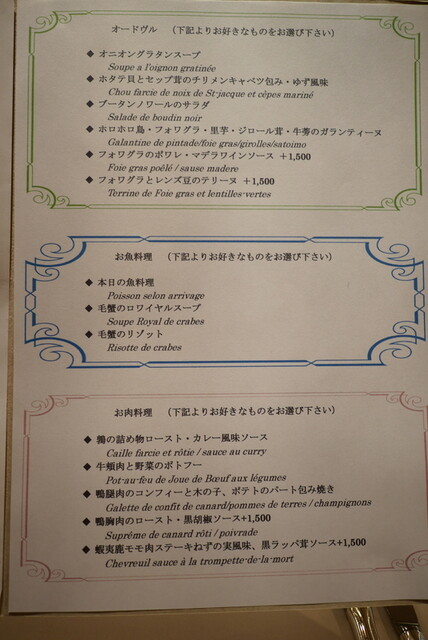 オードヴル　（下記よりお好きなものをお選び下さい）
◆ オニオングラタンスープ
Soupe a l'oignon gratinée
◆ ホタテ貝とセップ茸のチリメンキャベツ包み・ゆず風味
Chou farcie de noix de St-jacque et cèpes mariné
◆ ブータンノワールのサラダ
Salade de boudin noir
◆ ホロホロ鳥・フォワグラ・里芋・ジロール茸・牛蒡のガランティーヌ
Galantine de pintade/foie gras/girolles/satoimo
◆ フォワグラのポワレ・マデラワインソース ＋1,500
Foie gras poêlé / sause madere
◆ フォワグラとレンズ豆のテリーヌ ＋1,500
Terrine de Foie gras et lentilles-vertes
お魚料理　（下記よりお好きなものをお選び下さい）
◆ 本日の魚料理
Poisson selon arrivage
◆ 毛蟹のロワイヤルスープ
Soupe Royal de crabes
◆ 毛蟹のリゾット
Risotte de crabes
お肉料理　（下記よりお好きなものをお選び下さい）
◆ 鶉の詰め物ロースト・カレー風味ソース
Caille farcie et rôtie / sauce au curry
◆ 牛頬肉と野菜のポトフー
Pot-au-feu de Joue de Bœuf aux légumes
◆ 鴨腿肉のコンフィーと木の子、ポテトのパート包み焼き
Galette de confit de canard/pommes de terres / champignons
◆ 鴨胸肉のロースト・黒胡椒ソース+1,500
Suprême de canard rôti / poivrade
◆ 蝦夷鹿モモ肉ステーキねずの実風味、黒ラッパ茸ソース+1,500
Chevreuil sauce à la trompette-de-la-mort